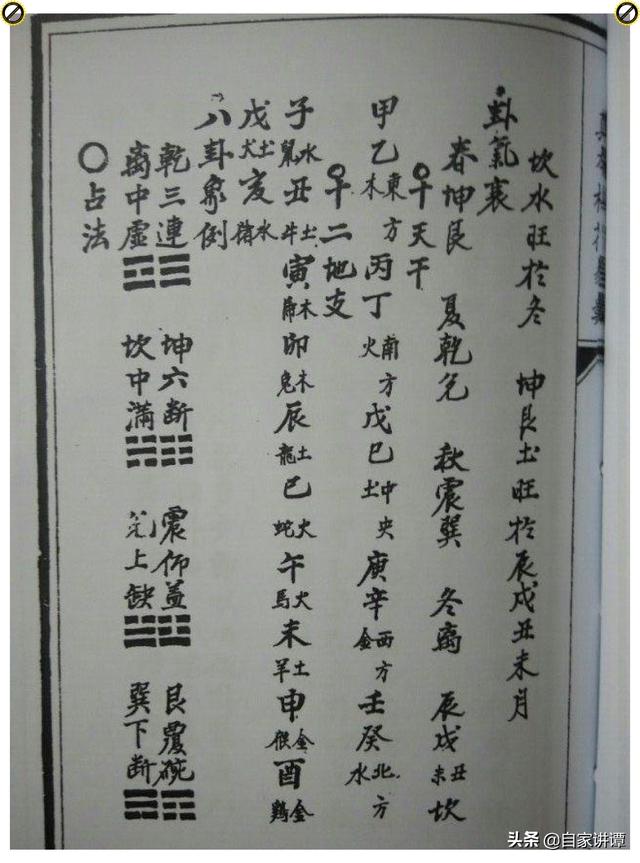 坎水旺於冬 坤艮土旺於辰戌丑未月
卦氣衰
春坤艮 夏乾兌 秋震巽 冬離 辰戌丑未坎
○十天干
甲乙東方木 丙丁南方火 戊己中央土 庚辛西方金 壬癸北方水
○十二地支
子水鼠 丑土牛 寅木虎 卯木兔 辰土龍 巳火蛇 午火馬 未土羊 申金猴 酉金鷄
戌土犬 亥水猪
八卦象例
乾三連☰ 坤六斷☷ 震仰盂☳ 艮覆碗☶
離中虛☲ 坎中滿☵ 兌上缺☱ 巽下斷☴
○占法
头条 @自家讲谭